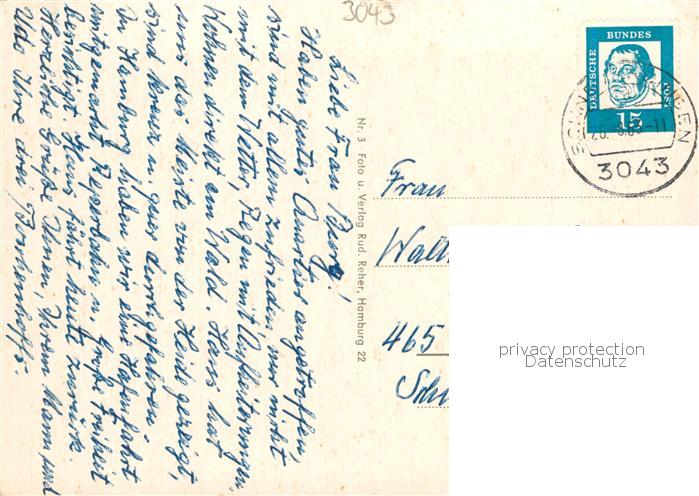 3043
Liebe Frau
Haben gutes Quartier angetroffen,
sind mit allem zufrieden nur nicht
mit dem Wetter, Regen mit Aufheiterungen.
Wohnen direkt am Wald. Hans hat
uns das Meiste von der Heide gezeigt,
sind kreuz u. quer durchgefahren.
In Hamburg haben wir eine Hafenfahrt
mitgemacht, Reeperbahn u. Große Freiheit
besichtigt. Hans fährt heute zurück.
Herzliche Grüße Ihnen, Ihrem Mann und
Udo Ihre drei
Nr. 3 Foto u. Verlag Rud. Reher, Hamburg 22
DEUTSCHE BUNDES POST
15
3043
Frau
465
privacy protection
Datenschutz